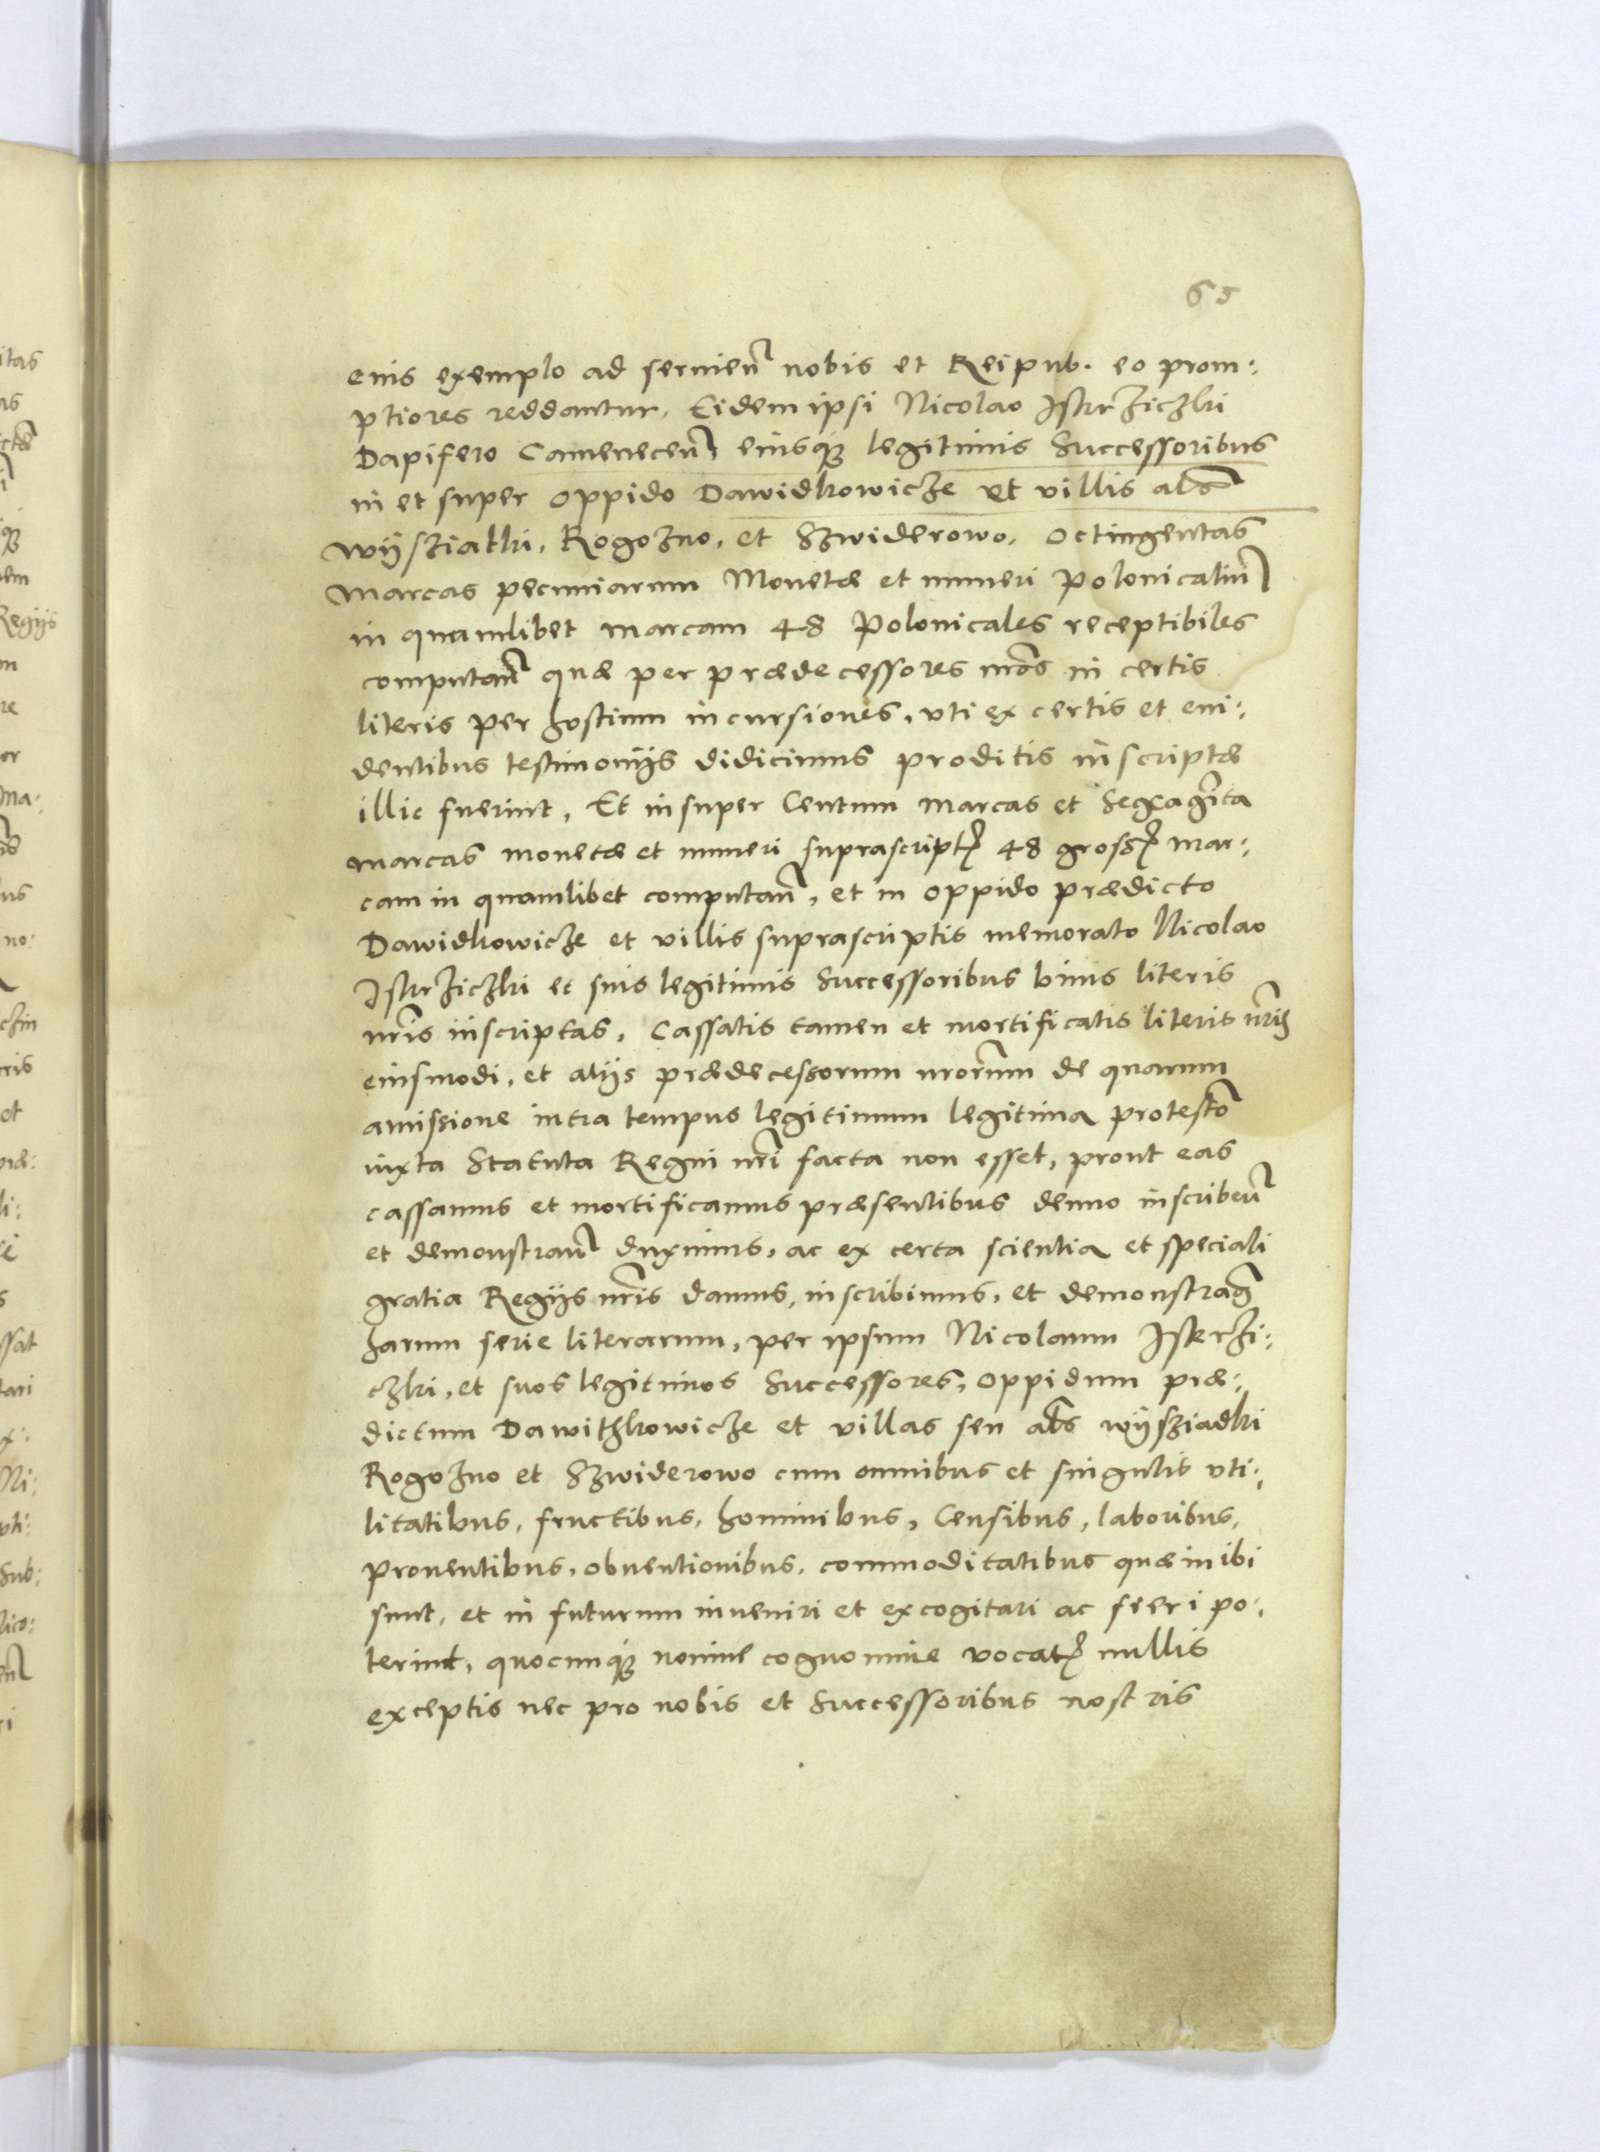 65
eius exemplo ad seruien̄ nobis et Reipub. eo prom:
ptiores reddantur. Eidem ipsi Nicolao Iskrziczki
Dapifero Camenecen̄, eiusqꝫ legitimis Successoribus
in et super oppido Dawidkowicze et villis al͞s
wÿsziatki, Rogozno, et Szwiderowo, octingentas
marcas pecuniarum Monetæ et numeri Polonicaliū
in quamlibet marcam 48 Polonicales receptibiles
computan̄ quæ per prædecessores nr̄os in certis
literis per hostium incursiones, vti ex certis et eui:
dentibus testimonijs didicimus proditis inscriptæ
illic fuerint, Et insuper Centum marcas et Sexagīta
marcas monetæ et numeri suprascript̛ 48 gross̛ mar:
cam in quamlibet computan̄, et in oppido prædicto
Dawidkowicze et villis suprascriptis memorato Nicolao
Iskrziczki et suis legitimis Successoribus binis literis
nr̄is inscriptas, Cassatis tamen et mortificatis literis nr̄is
eiusmodi, et alijs prædecessorum nrōrum de quarum
amissione intra tempus legitimum legitima protest̄o
iuxta Statuta Regni nr̄i facta non esset, prout eas
cassamus et mortificamus præsentibus denuo inscriben̄
et demonstran̄ duximus, ac ex certa scientia et speciali
gratia Regijs nr̄is damus, inscribimus, et demonstram̄
harum serie literarum, per ipsum Nicolaum Iskrzi:
czki, et suos legitimos Successores, oppidum præ:
dictum Dawithkowicze et villas seu al͞s wÿsziadki
Rogozno et Szwiderowo cum omnibus et singulis vti:
litatibus, fructibus, hominibus, Censibus, laboribus,
prouentibus, obuentionibus, commoditatibus quæ in ibi
sunt, et in futurum inueniri et excogitari ac feeri po:
terint, quocunqꝫ nomine cognomine vocat̛ nullis
exceptis nec pro nobis et Successoribus nostris